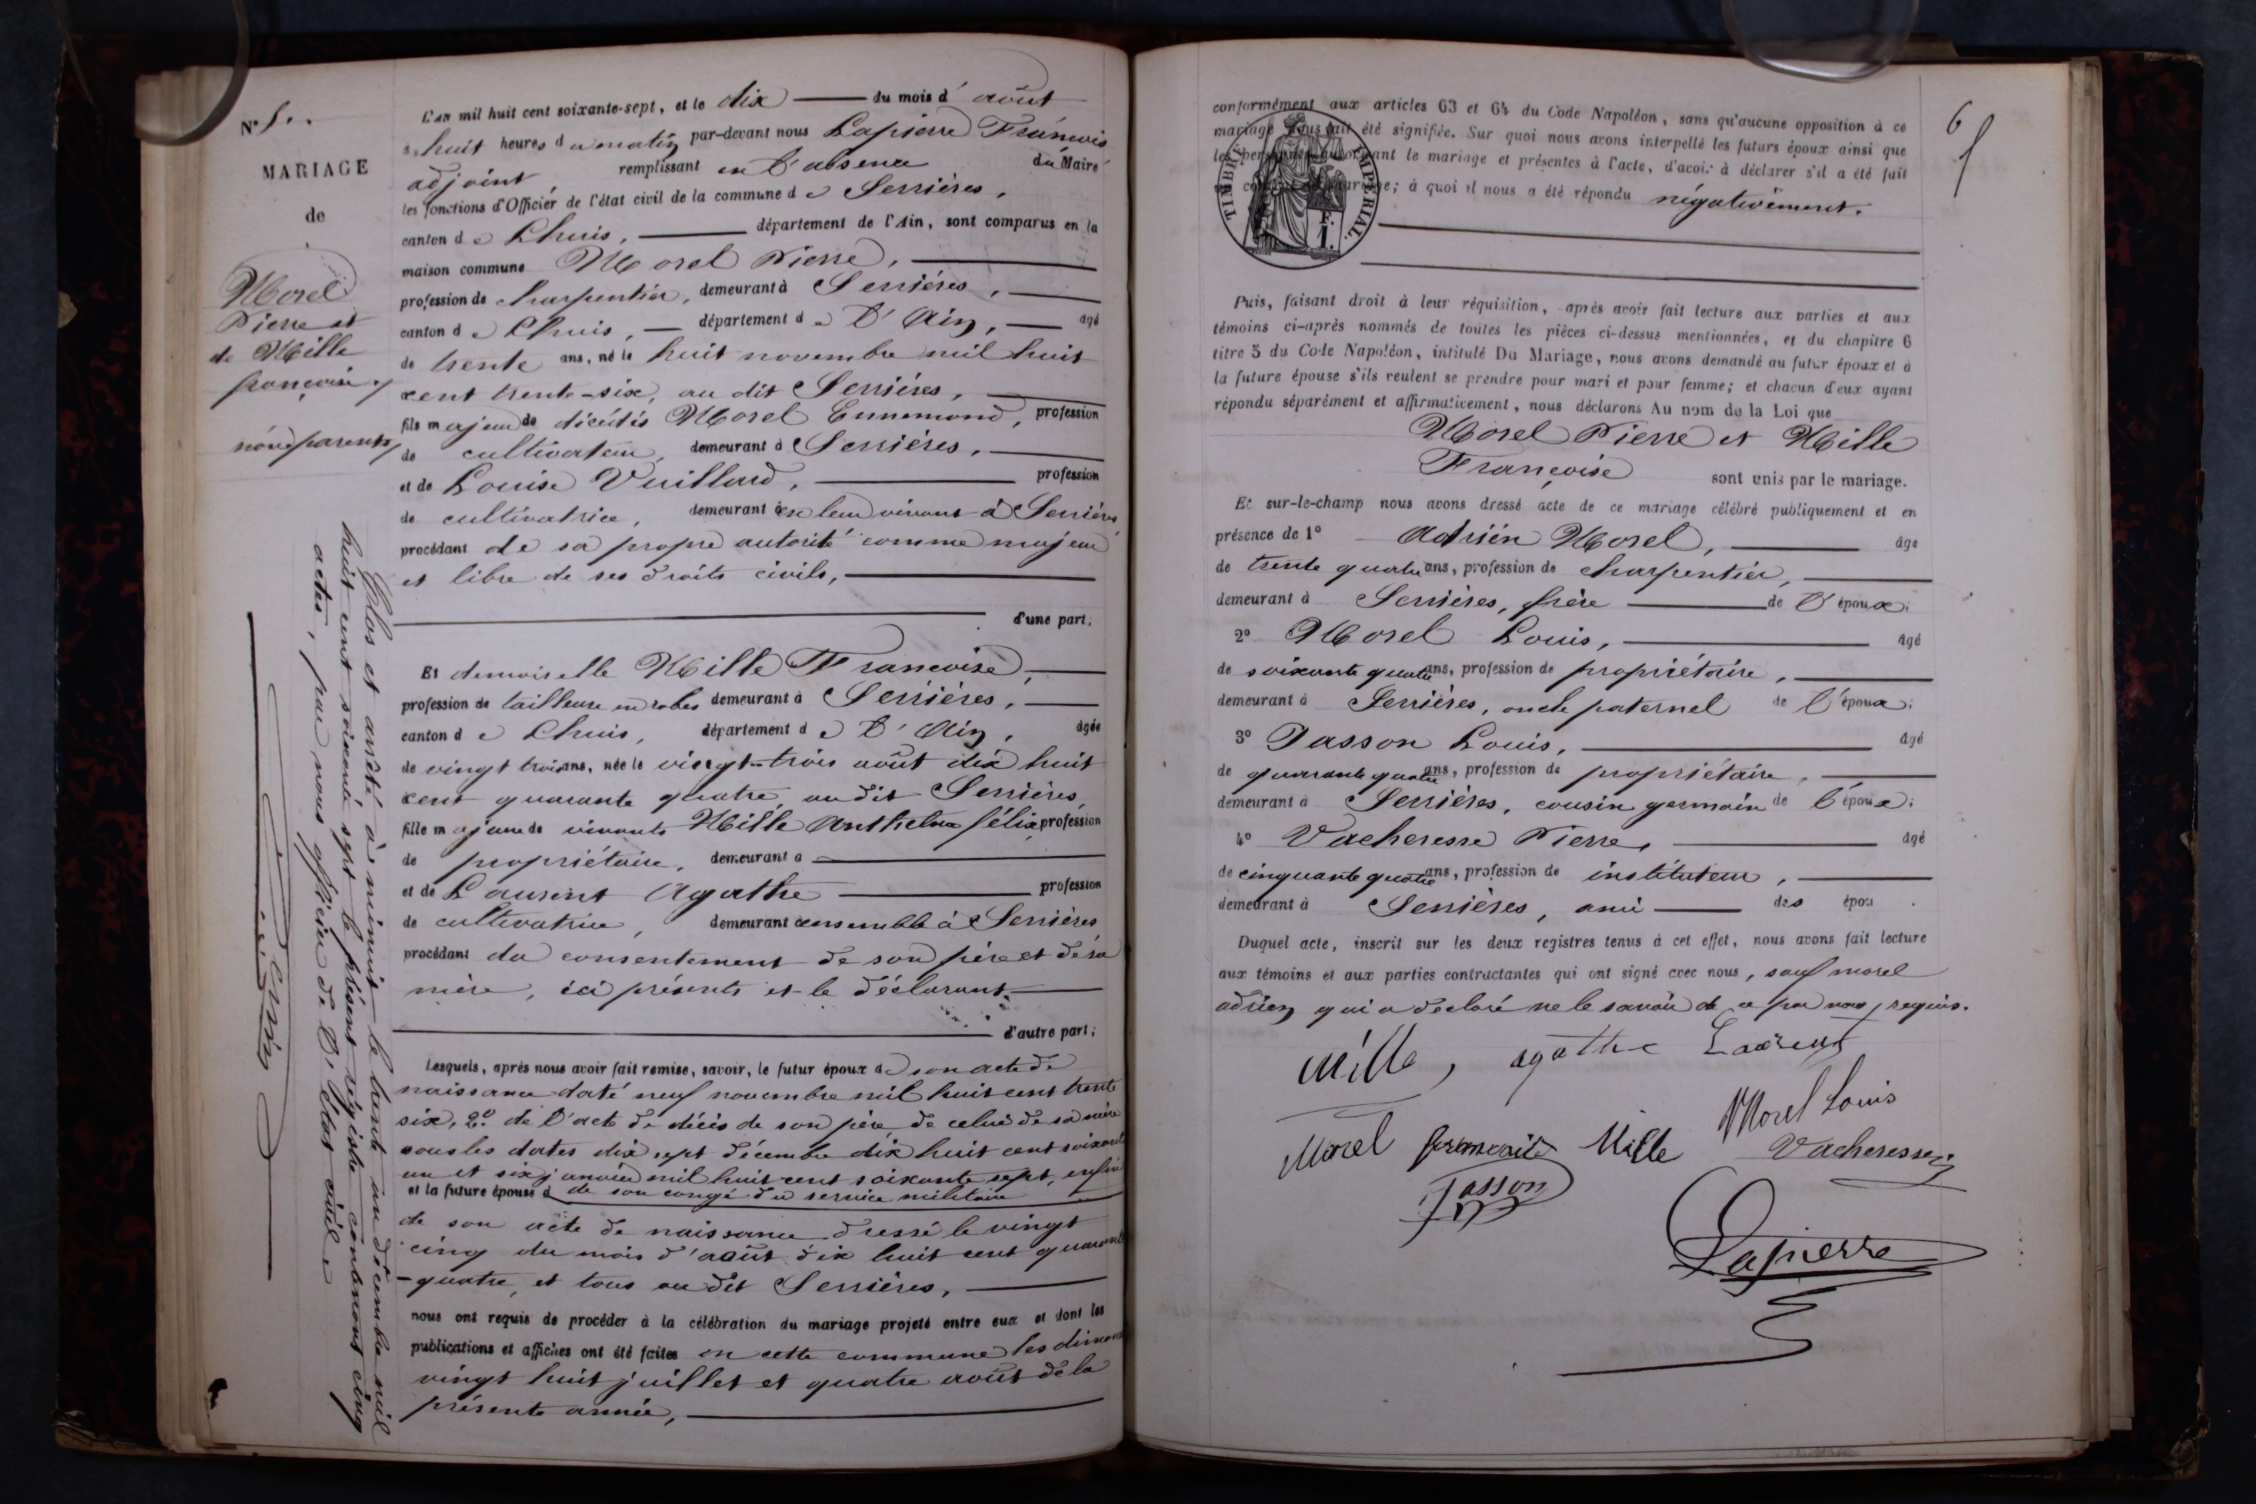 N° 5.
MARIAGE
de
Morel
Pierre et
de Mille
françoise
non parents
L'an mil huit cent soixante-sept, et le dix du mois d'août
à huit heures du matin par-devant nous Lapierre François
adjoint remplissant en l'absence du Maire
les fonctions d'Officier de l'état civil de la commune de Serrières,
canton de Lhuis, département de l'Ain, sont comparus en la
maison commune Morel Pierre,
profession de charpentier, demeurant à Serrières,
canton de Lhuis, département de l'Ain, âgé
de trente ans, né le huit novembre mil huit
cent trente-six, au dit Serrières,
fils majeur de décédés Morel Ennemond, profession
de cultivateur, demeurant à Serrières,
et de Louise Vuillard, profession
de cultivatrice, demeurant en leur vivant à Serrières
procédant de sa propre autorité comme majeur
et libre de ses droits civils,
d'une part;
Et demoiselle Mille Françoise,
profession de tailleuse en robes demeurant à Serrières,
canton de Lhuis, département de l'Ain, âgée
de vingt trois ans, née le vingt-trois août dix huit
cent quarante quatre, au dit Serrières,
fille majeure de vivants Mille Anthelme félix profession
de propriétaire, demeurant à
et de Laurent Agathe profession
de cultivatrice, demeurant ensemble à Serrières
procédant du consentement de son père et de sa
mère, ici présents et le déclarant.
d'autre part;
Lesquels, après nous avoir fait remise, savoir, le futur époux de son acte de
naissance daté neuf novembre mil huit cent trente
six, 2° de l'acte de décès de son père, de celui de sa mère
sous les dates dix sept décembre dix huit cent soixante
un et six janvier mil huit cent soixante sept, enfin
et la future épouse d de son congé du service militaire
de son acte de naissance dressé le vingt
cinq du mois d'août dix huit cent quarante
-quatre, et tous au dit Serrières,
nous ont requis de procéder à la célébration du mariage projeté entre eux et dont les
publications et affiches ont été faites en cette commune les dimanches
vingt huit juillet et quatre août de la
présente année,
Clos et arrêté à minuit le trente un décembre mil
huit cent soixante sept le présent registre contenant cinq
actes, par nous officier de l'état civil
6
conformément aux articles 63 et 64 du Code Napoléon, sans qu'aucune opposition à ce
mariage nous ait été signifiée. Sur quoi nous avons interpellé les futurs époux ainsi que
les personnes autorisant le mariage et présentes à l'acte, d'avoir à déclarer s'il a été fait
un contrat de mariage; à quoi il nous a été répondu négativement.
TIMBRE IMPÉRIAL.
Puis, faisant droit à leur réquisition, après avoir fait lecture aux parties et aux
témoins ci-après nommés de toutes les pièces ci-dessus mentionnées, et du chapitre 6
titre 5 du Code Napoléon, intitulé Du Mariage, nous avons demandé au futur époux et à
la future épouse s'ils veulent se prendre pour mari et pour femme; et chacun d'eux ayant
répondu séparément et affirmativement, nous déclarons Au nom de la Loi que
Morel Pierre et Mille
Françoise sont unis par le mariage.
Et sur-le-champ nous avons dressé acte de ce mariage célébré publiquement et en
présence de 1° Adrien Morel, âgé
de trente quatre ans, profession de charpentier,
demeurant à Serrières, frère de l'époux;
2° Morel Louis, âgé
de soixante quatre ans, profession de propriétaire,
demeurant à Serrières, oncle paternel de l'époux;
3° Passon Louis, âgé
de quarante quatre ans, profession de propriétaire,
demeurant à Serrières, cousin germain de l'époux;
4° Vacheresse Pierre, âgé
de cinquante quatre ans, profession de instituteur,
demeurant à Serrières, ami des épou
Duquel acte, inscrit sur les deux registres tenus à cet effet, nous avons fait lecture
aux témoins et aux parties contractantes qui ont signé avec nous, sauf morel
adrien qui a déclaré ne le savoir de ce par nous requis.
Mille, agathe Laurent
Morel Louis
Morel Mille
Vacheresse
Passon
Lapierre